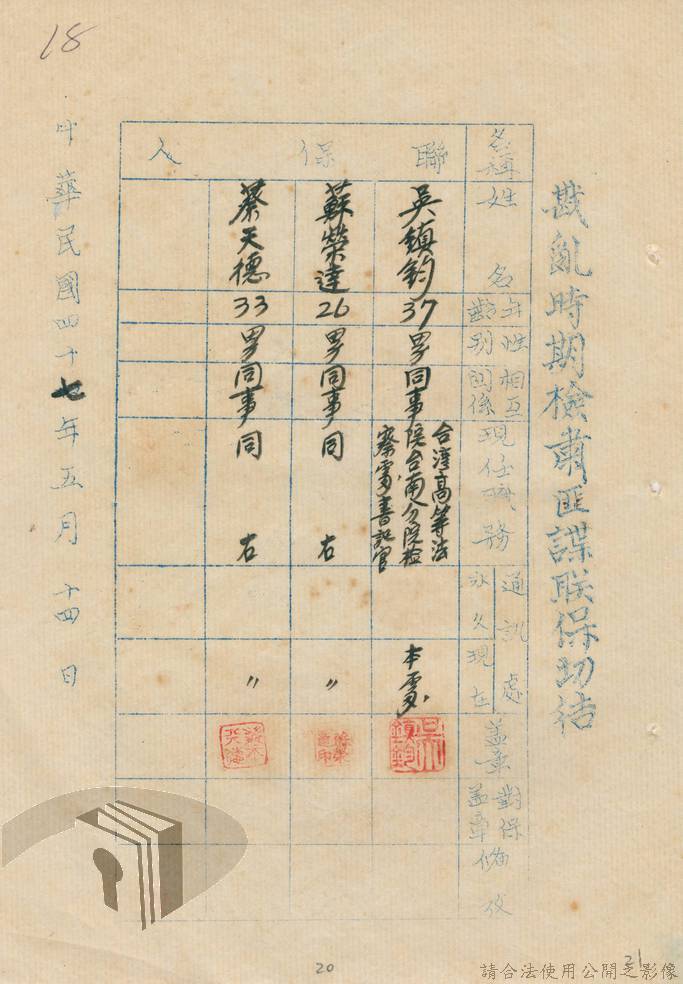 18
戡亂時期檢肅匪諜联保切結
名稱
姓名
年齡
性別
相互関係
現任職務
通訊處
永久
現在
蓋章
對保蓋章
備攷
聯保人
吳鎮鈞
37
男
同事
台湾高等法院台南分院檢察處書記官
本處
吳鎮鈞
蘇榮達
26
男
同事
同右
〃
蔡天德
33
男
同事
同右
〃
中華民國四十七年五月十四日
20
21
請合法使用公開之影像